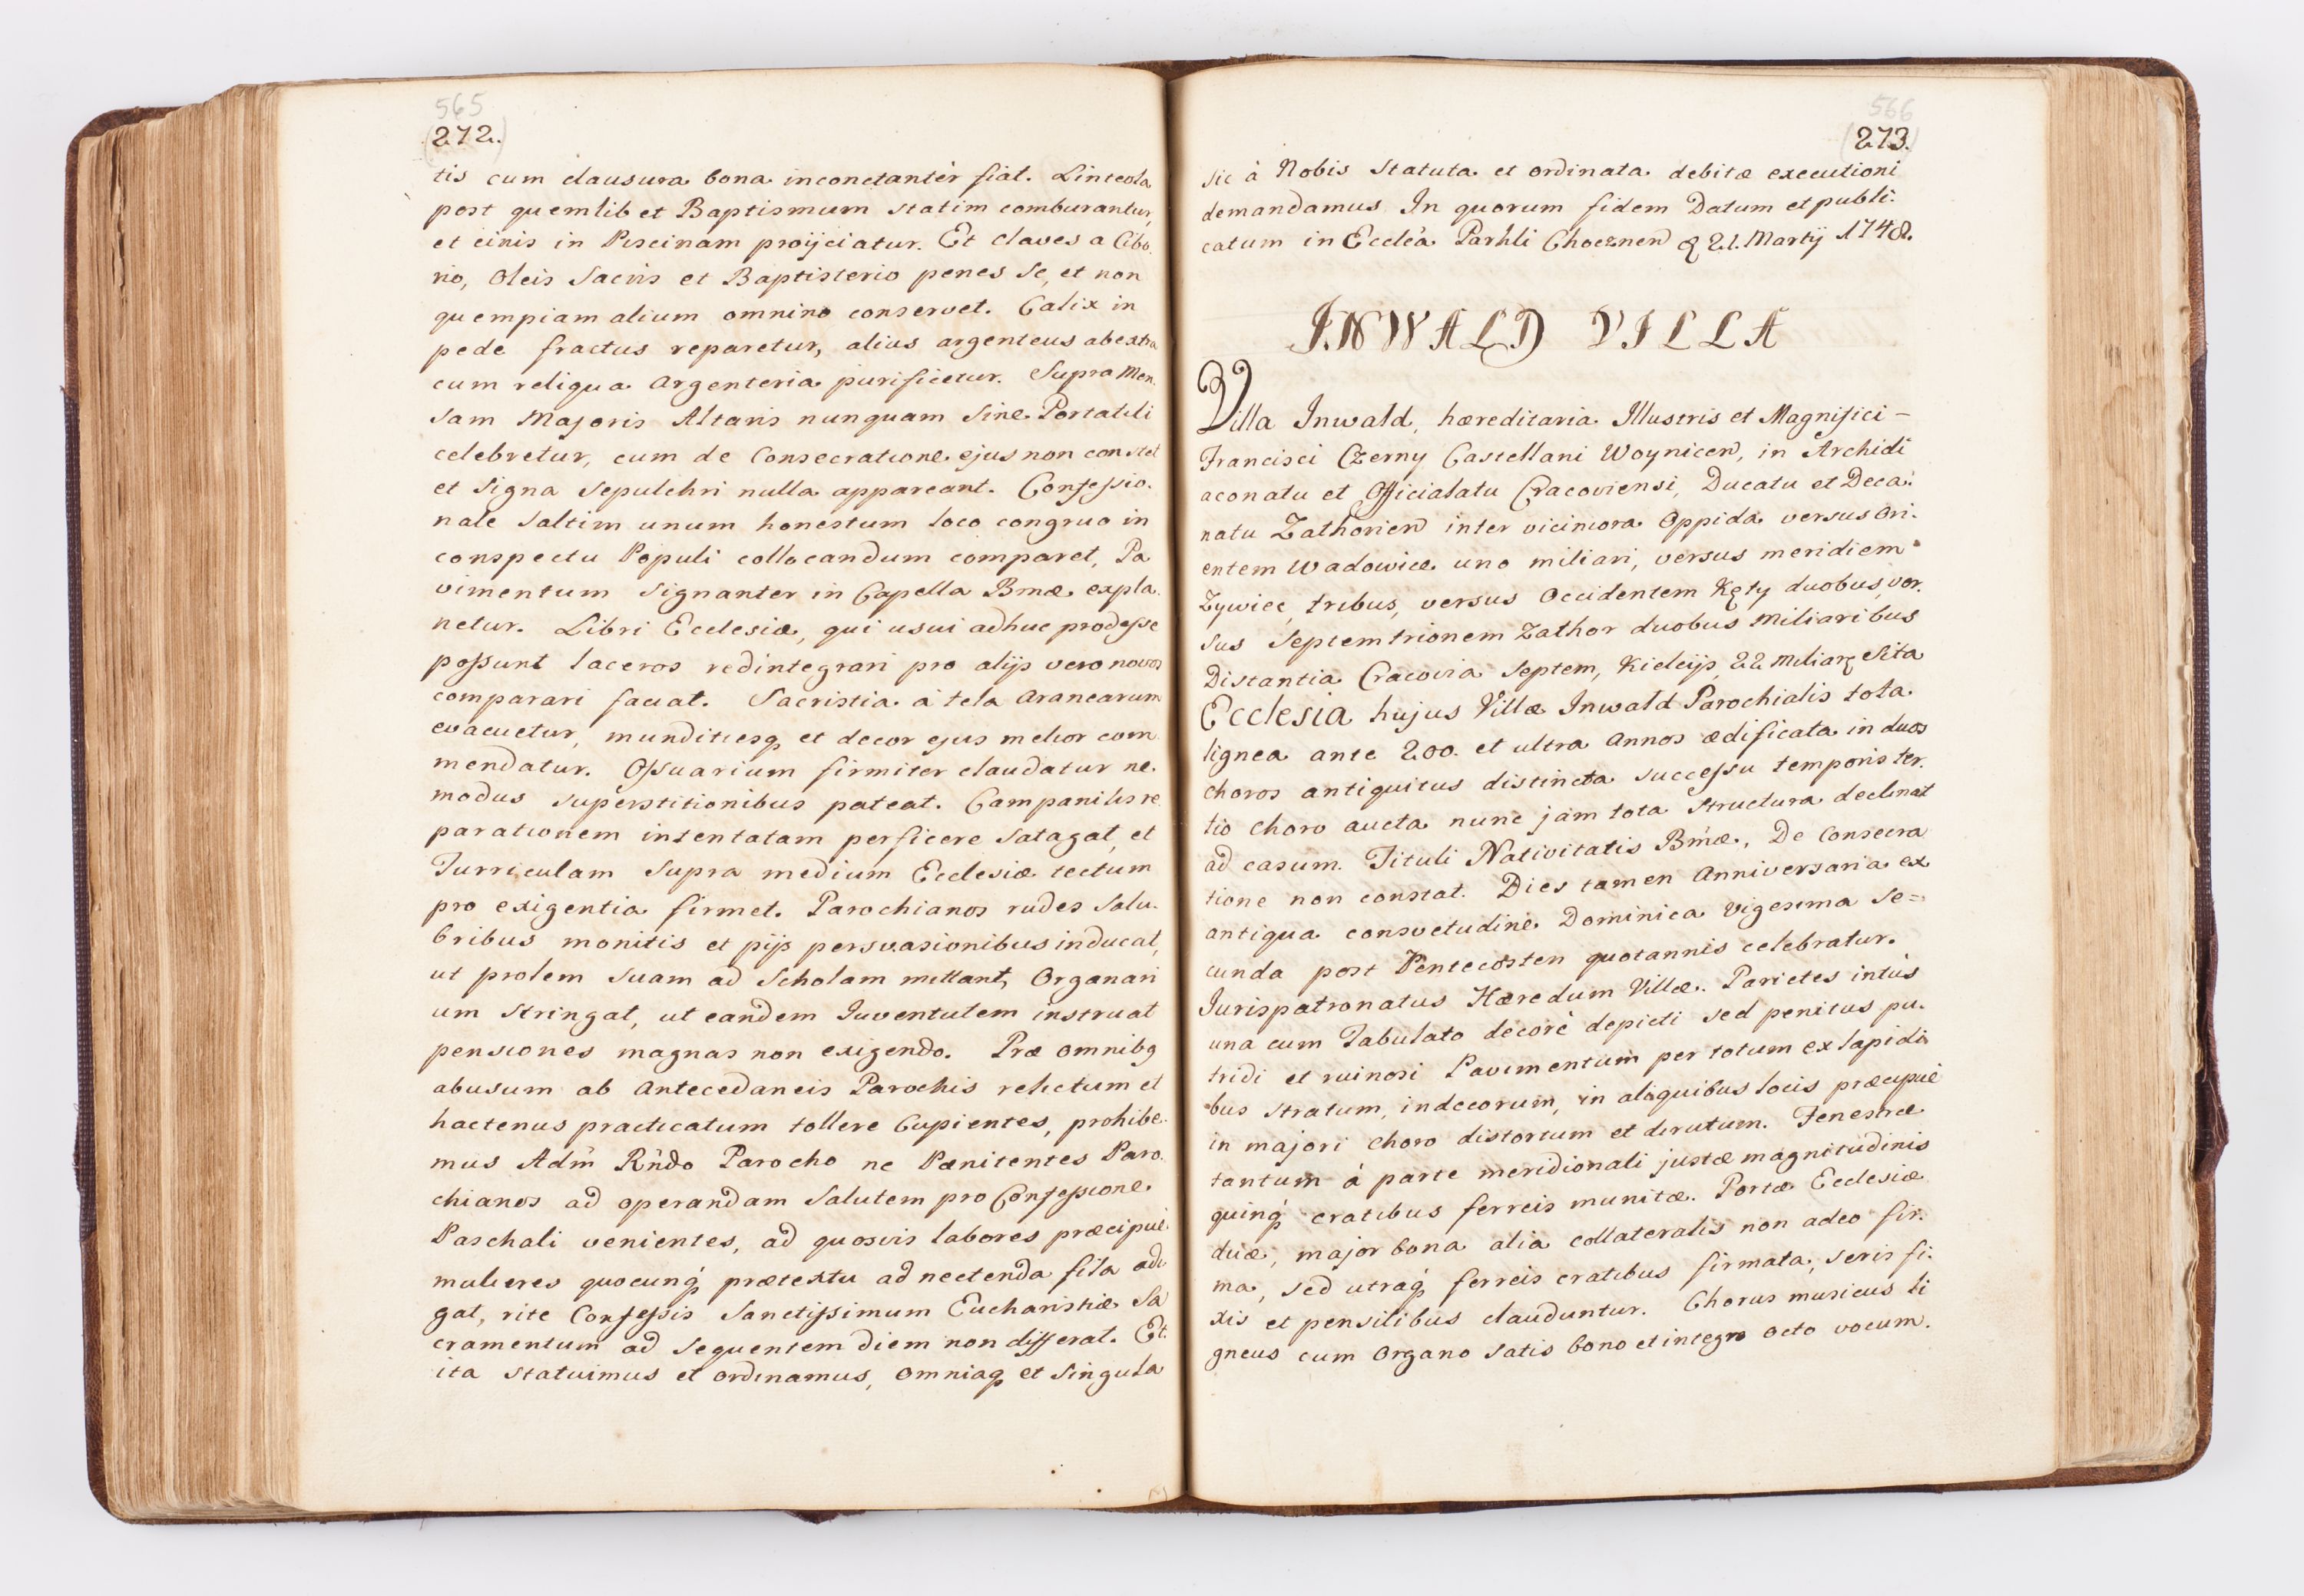 565
(272.)
tis cum clausura bona inconctantèr fiat. Linteola
post quemlibet Baptismum statim comburantur,
et cinis in Piscinam proijciatur. Et claves a Cibo.
rio, Oleis Sacris et Baptisterio penes se, et non
quempiam alium omnino conservet. Calix in
pede fractus reparetur, alius argenteus ab extra
cum reliqua argenteria purificetur. Supra Men.
sam Majoris Altaris nunquam sine Portatili
celebretur, cum de Consecratione ejus non constet
et signa sepulchri nulla appareant. Confessio.
nale saltim unum honestum loco congruo in
conspectu Populi collocandum comparet, Pa
vimentum signanter in Capella Bmæ expla.
netur. Libri Ecclesiæ, qui usui adhuc prodesse
possunt laceros redintegrari pro alijs vero novos
comparari faciat. Sacristia à tela aranearum
evacuetur, munditiesq et decor ejus melior com
mendatur. Ossuarium firmiter claudatur ne.
modus superstitionibus pateat. Campanilis re
parationem intentatam perficere satagat, et
Turriculam supra medium Ecclesiæ tectum
pro exigentia firmet. Parochianos rudes salu.
bribus monitis et pijs persvasionibus inducat,
ut prolem suam ad Scholam mittant, Organari
um stringat, ut eandem Iuventutem instruat
pensiones magnas non exigendo. Præ omnibq
abusum ab antecedaneis Parochis relictum et
hactenus practicatum tollere Cupientes, prohibe.
mus Adm̃ Rñdo Parocho ne Pænitentes Paro.
chianos ad operandam salutem pro Confessione
Paschali venientes, ad quosvis labores præcipuè
mulieres quocunq́ prætextu ad nectenda fila adi
gat, rite Confessis Sanctissimum Eucharistiæ Sa
cramentum ad sequentem diem non differat. Et
ita statuimus et ordinamus, omniaq et singula
566
(273.)
sic à Nobis statuta et ordinata debitæ executioni
demandamus In quorum fidem Datum et publi.
catum in Eccleá Parhli Choczneñ 21. Martij 1748.
INWALD VILLA
Villa Inwald, hæreditaria Illustris et Magnifici –
Francisci Czerny Castellani Woyniceñ, in Archidi
aconatu et Officialatu Cracoviensi, Ducatu et Deca.
natu Zathorieñ inter viciniora Oppida versus Ori.
entem Wadowice uno miliari, versus meridiem
Zywiec, tribus, versus Occidentem Kęty duobus, ver.
sus Septemtrionem Zathor duobus miliaribus
Distantia Cracovia Septem, Kielcijs, 22 Miliarq Sita
Ecclesia hujus Villæ Inwald Parochialis tota
lignea ante 200. et ultra annos ædificata in duos
choros antiquitus distincta successu temporis ter.
tio choro aucta nunc jàm tota structura declinat
ad casum. Tituli Nativitatis Bmæ, De Consecra
tione non constat. Dies tamen Anniversaria ex
antiqua consvetudine Dominica vigesima se=
cunda post Pentecosten quotannis celebratur.
Iurispatronatus Hæredum Villæ. Parietes intùs
una cum Tabulato decorè depicti sed penitus pu.
tridi et ruinosi Pavimentum per totum ex lapidi
bus stratum, indecorum, in aliquibus locis præcipuè
in majori choro distortum et dirutum. Fenestræ
tantum à parte meridionali justæ magnitudinis
quinq́ cratibus ferreis munitæ. Portæ Ecclesiæ
duæ, major bona alia collateralis non adeo fir.
ma, sed utraq́ ferreis cratibus firmata, seris fi.
xis et pensilibus clauduntur. Chorus musicus li
gneus cum Organo satis bono et integro octo vocum.